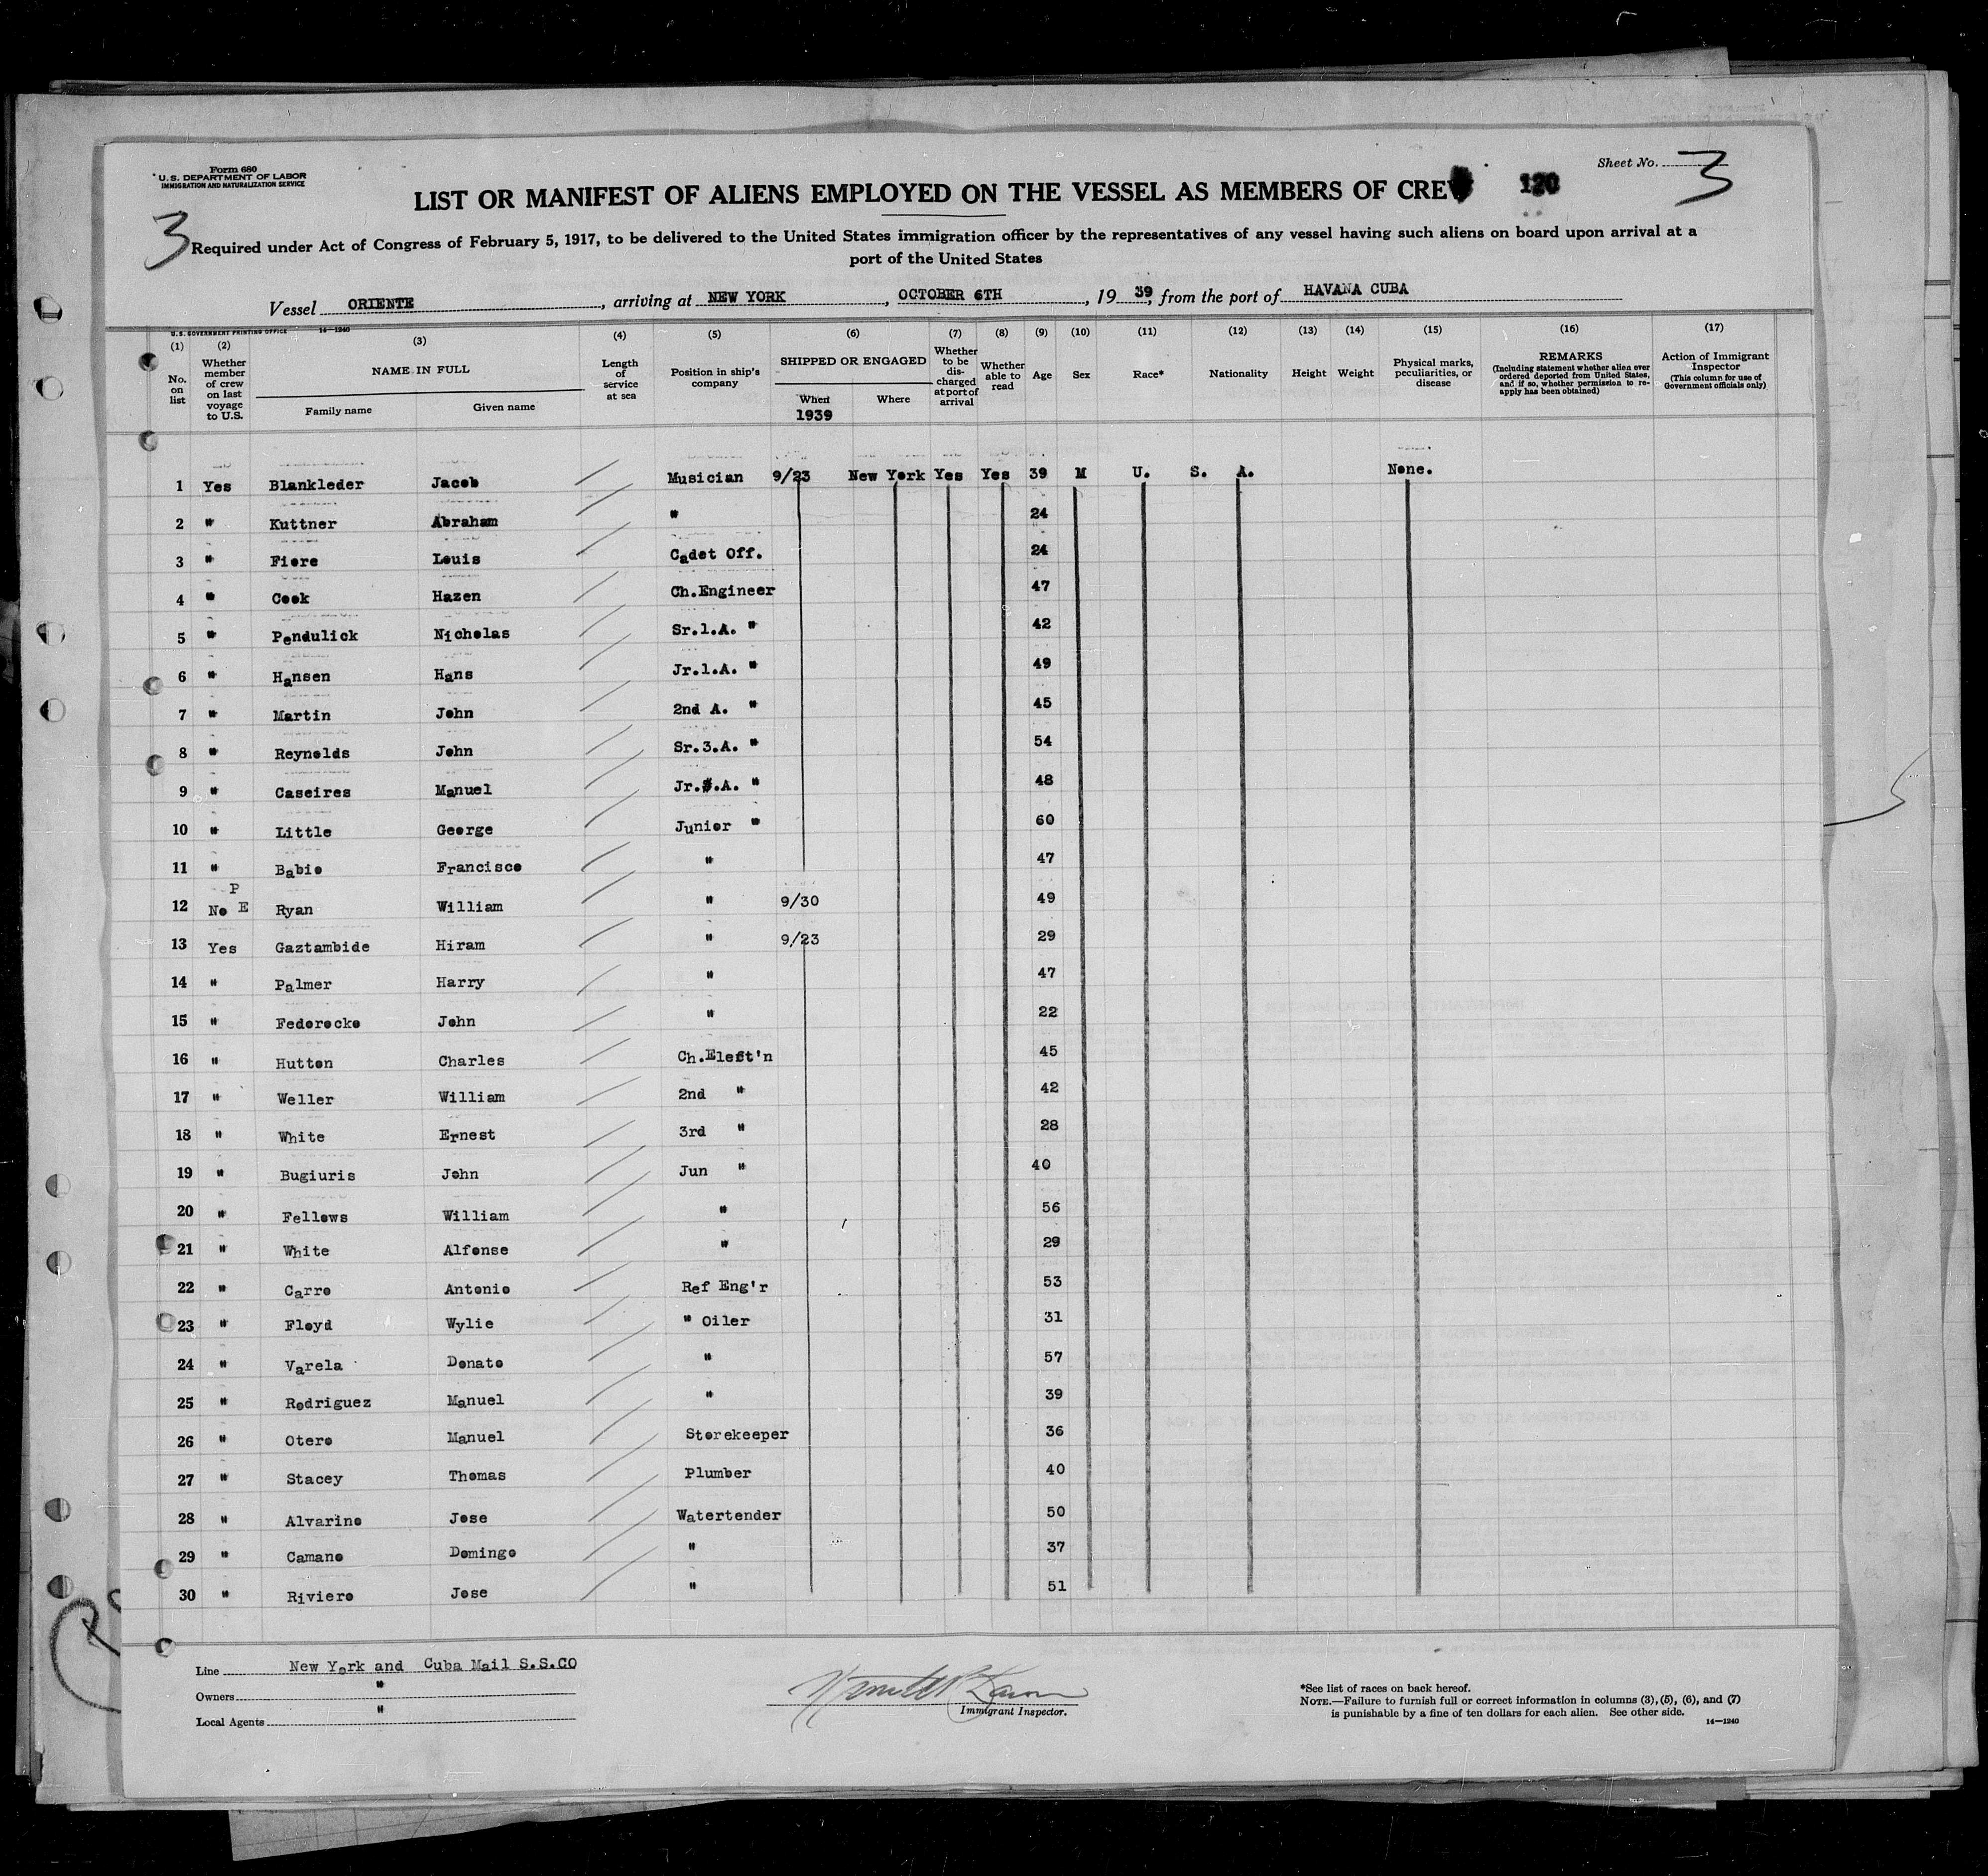 Form 680
U. S. DEPARTMENT OF LABOR
IMMIGRATION AND NATURALIZATION SERVICE
Sheet No. 3
LIST OR MANIFEST OF ALIENS EMPLOYED ON THE VESSEL AS MEMBERS OF CREW 120
3
Required under Act of Congress of February 5, 1917, to be delivered to the United States immigration officer by the representatives of any vessel having such aliens on board upon arrival at a
port of the United States
Vessel ORIENTE, arriving at NEW YORK, OCTOBER 6TH, 1939, from the port of HAVANA CUBA
U. S. GOVERNMENT PRINTING OFFICE 14—1240
(1) No. on list
(2) Whether member of crew on last voyage to U.S.
(3) NAME IN FULL
Family name Given name
(4) Length of service at sea
(5) Position in ship's company
(6) SHIPPED OR ENGAGED
When Where
1939
(7) Whether to be discharged at port of arrival
(8) Whether able to read
(9) Age
(10) Sex
(11) Race*
(12) Nationality
(13) Height
(14) Weight
(15) Physical marks, peculiarities, or disease
(16) REMARKS (Including statement whether alien ever ordered deported from United States, and if so, whether permission to re-apply has been obtained)
(17) Action of Immigrant Inspector (This column for use of Government officials only)
1 Yes Blankleder Jacob Musician 9/23 New York Yes Yes 39 M U. S. A. None.
2 " Kuttner Abraham " 24
3 " Fiore Louis Cadet Off. 24
4 " Cook Hazen Ch.Engineer 47
5 " Pendulick Nicholas Sr.1.A. " 42
6 " Hansen Hans Jr.1.A. " 49
7 " Martin John 2nd A. " 45
8 " Reynolds John Sr.3.A. " 54
9 " Caseires Manuel Jr.3.A. " 48
10 " Little George Junior " 60
11 " Babio Francisco " 47
12 No P E Ryan William " 9/30 49
13 Yes Gaztambide Hiram " 9/23 29
14 " Palmer Harry " 47
15 " Federocko John " 22
16 " Hutton Charles Ch.Eleft'n 45
17 " Weller William 2nd " 42
18 " White Ernest 3rd " 28
19 " Bugiuris John Jun " 40
20 " Fellows William " 56
21 " White Alfonse " 29
22 " Carro Antonio Ref Eng'r 53
23 " Floyd Wylie " Oiler 31
24 " Varela Donato " 57
25 " Rodriguez Manuel " 39
26 " Otero Manuel Storekeeper 36
27 " Stacey Thomas Plumber 40
28 " Alvarino Jose Watertender 50
29 " Camano Domingo " 37
30 " Riviero Jose " 51
Line New York and Cuba Mail S.S.CO
Owners "
Local Agents "
Immigrant Inspector.
*See list of races on back hereof.
NOTE.—Failure to furnish full or correct information in columns (3), (5), (6), and (7)
is punishable by a fine of ten dollars for each alien. See other side.
14—1240